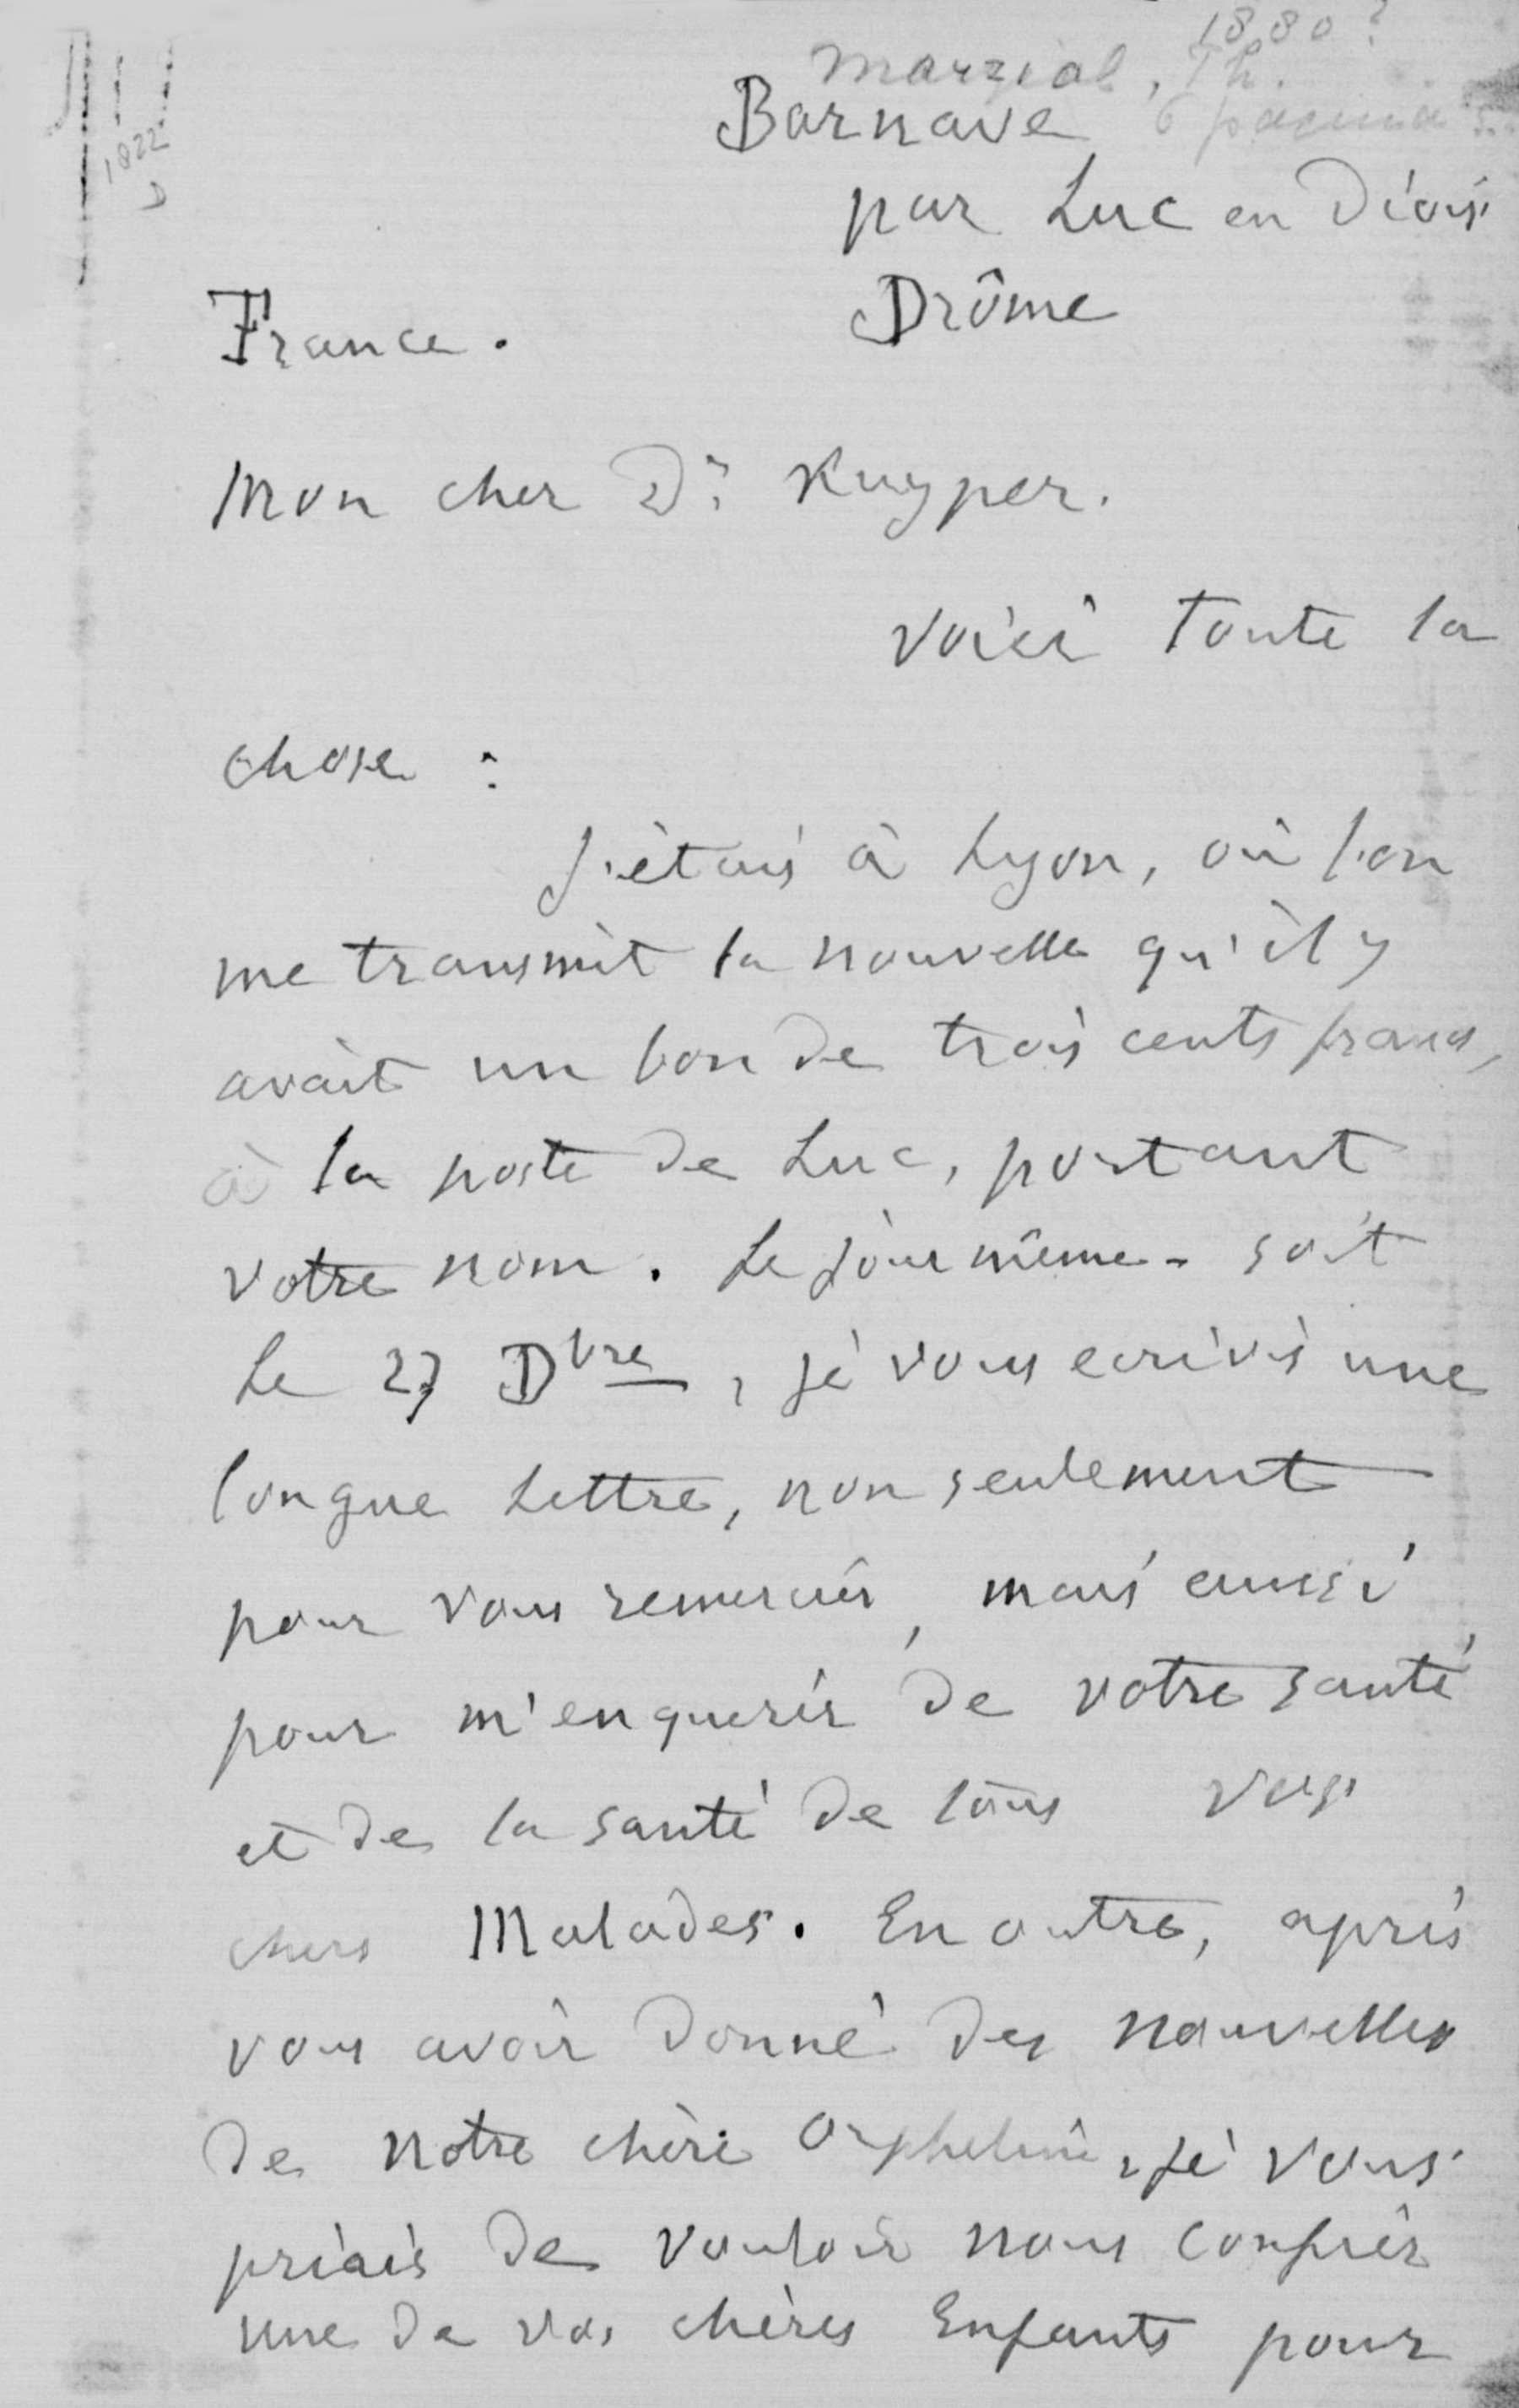 1880?
Marzial, Th.
Barnave 6 pagina's
par Luc en Diois
Drôme
France.
1822
D
Mon cher Dr Kuyper.
Voici toute la
chose :
J'étais à Lyon, où l'on
me transmit la nouvelle qu'il y
avait un bon de trois cents francs,
à la poste de Luc, portant
votre nom. Le jour même - soit
le 27 Dbre, je vous ecrivis une
longue lettre, non seulement
pour vous remercier, mais aussi
pour m'enquerir de votre santé
et de la santé de tous vos
chers Malades. En outre, après
vous avoir donné des nouvelles
de notre chère Orpheline, je vous
priais de vouloir nous confier
une de vos chères Enfants pour